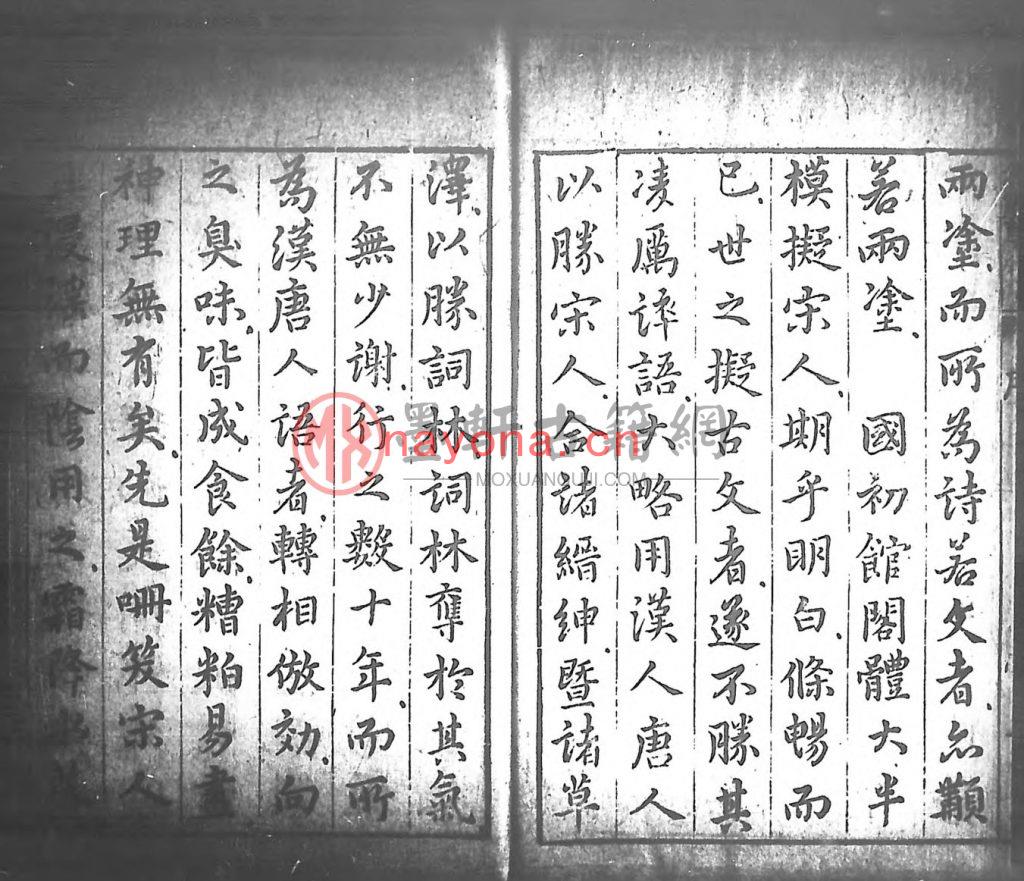 兩塗而所為詩若文者亦顓
若兩塗　國初館閣體大半
模擬宋人期乎明白條暢而
已世之擬古文者遂不勝其
凌厲誶語大略用漢人唐人
以勝宋人合諸縉紳暨諸草
澤以勝詞林詞林奪於其氣
不無少謝行之數十年而所
為漢唐人語者轉相倣効向
之臭味皆成食餘糟粕易盡
神理無有矣先是哂笑宋人
而陰用之霜降水
墨軒古籍網
nayona.cn
MOXUANGUJI.COM